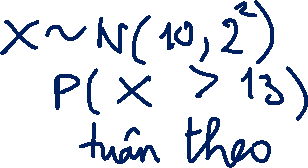 X ~ N(10, 2²)
P(X > 13)
tuân theo